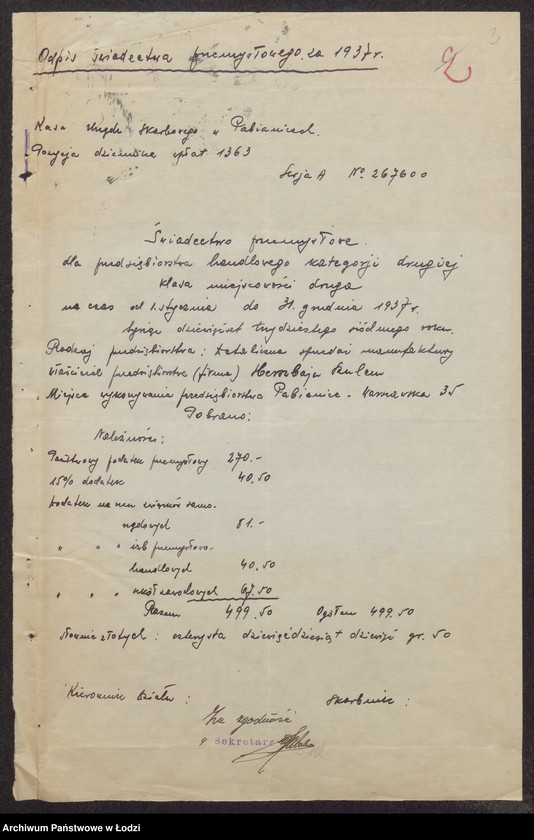 3
2
Odpis świadectwa przemysłowego za 1937 r.
Kasa Urzędu Skarbowego w Pabianicach.
Pozycja dziennika wpłat 1363
Serja A No 267600
Świadectwo przemysłowe
dla przedsiębiorstwa handlowego kategorji drugiej
klasa miejscowości druga
na czas od 1. stycznia do 31. grudnia 1937 r.
tysiąc dziewięćset trzydziestego siódmego roku.
Rodzaj przedsiębiorstwa: Detaliczna sprzedaż manufaktury
Właściciel przedsiębiorstwa (firma) Herszbajn
Miejsce wykonywania przedsiębiorstwa Pabianice - Warszawska 35
Pobrano:
Należność:
Państwowy podatek przemysłowy 270.-
15% dodatek 40.50
Dodatek na rzecz związków samo-
rządowych 81.-
" " " izb przemysłowo-
handlowych 40.50
" " " szkół zawodowych 67.50
Razem 499.50 Ogółem 499.50
Słownie złotych: czterysta dziewięćdziesiąt dziewięć gr. 50
Kierownik działu: Skarbnik:
Za zgodność
Sekretarz
Archiwum Państwowe w Łodzi